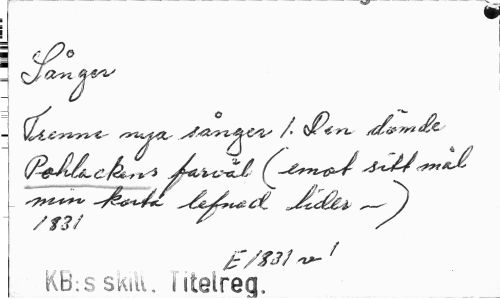 Sånger
Trenne nya sånger 1. Den dömde
Pohlackens farväl (emot sitt mål
min korta lefnad lider —)
1831
E 1831 v 1
KB:s skill. Titelreg.